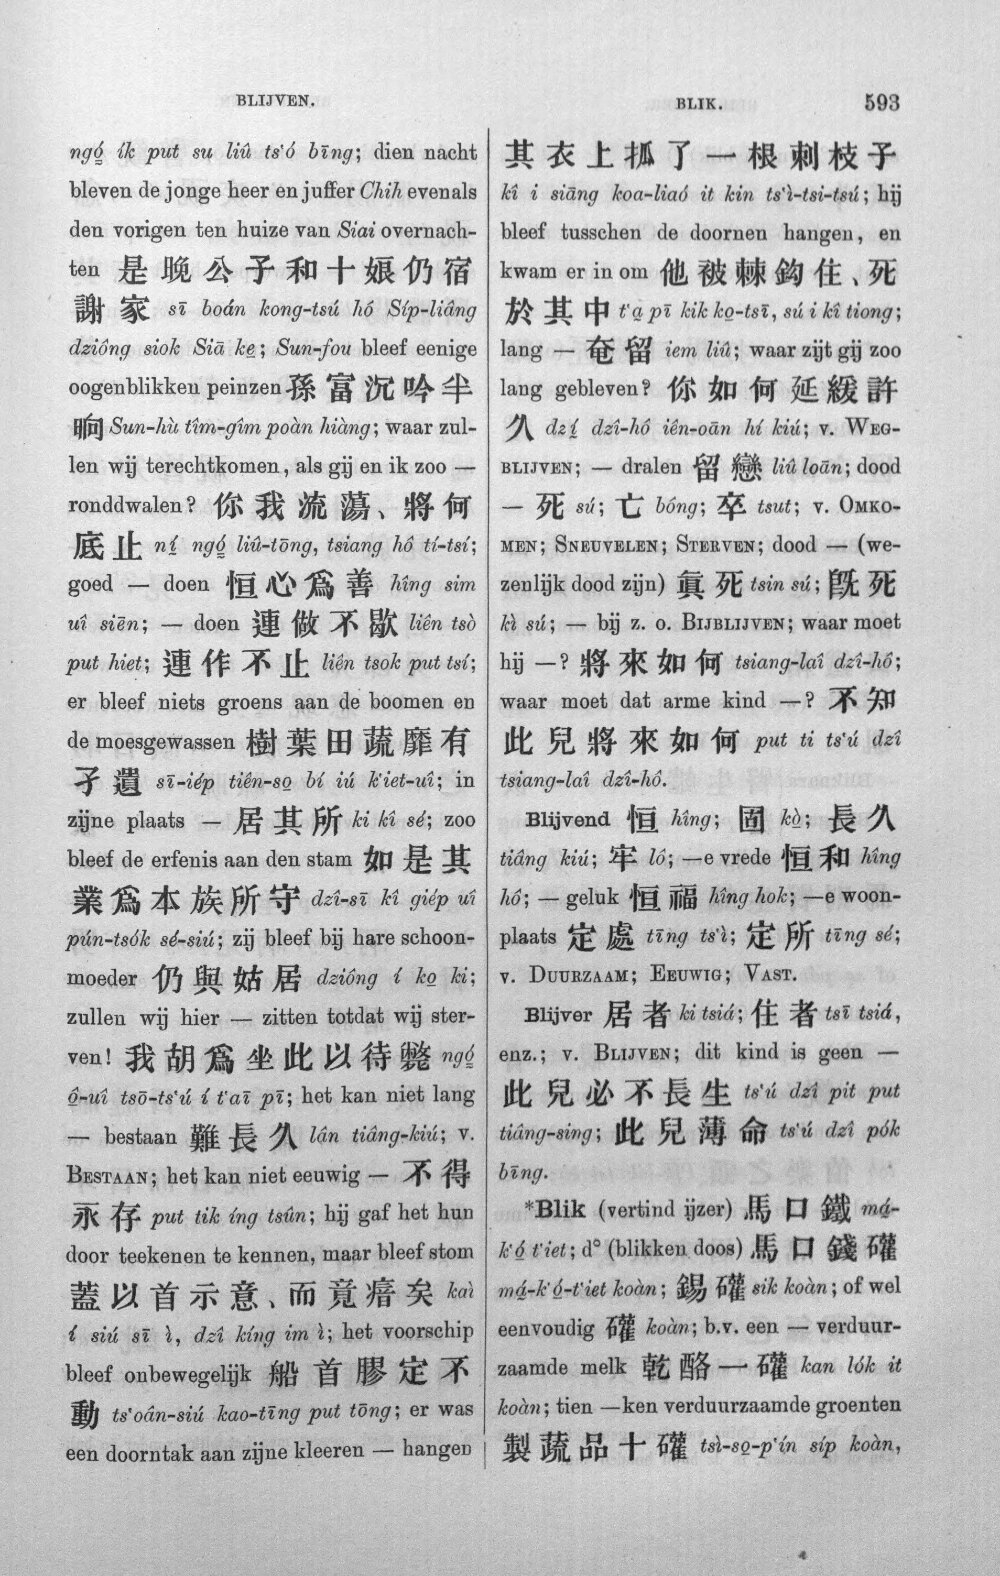 BLIJVEN.
BLIK. 593
ngó̤ ík put su liû ts‘ó bīng; dien nacht
bleven de jonge heer en juffer Chih evenals
den vorigen ten huize van Siai overnach-
ten 是晚公子和十娘仍宿
謝家 sī boán kong-tsú hó Síp-liâng
dzióng siok Siā ke̤; Sun-fou bleef eenige
oogenblikken peinzen 孫富沉吟半
晌 Sun-hù tîm-gîm poàn hiàng; waar zul-
len wij terechtkomen, als gij en ik zoo —
ronddwalen? 你我流蕩、將何
底止 ní̤ ngó̤ liû-tōng, tsiang hô tí-tsí;
goed — doen 恒心爲善 hîng sim
uî siēn; — doen 連做不歇 liên tsò
put hiet; 連作不止 liên tsok put tsí;
er bleef niets groens aan de boomen en
de moesgewassen 樹葉田蔬靡有
孑遺 sī-iép tiên-so̤ bí iú k‘iet-uî; in
zijne plaats — 居其所 ki kî sé; zoo
bleef de erfenis aan den stam 如是其
業爲本族所守 dzî-sī kî giép uî
pún-tsók sé-siú; zij bleef bij hare schoon-
moeder 仍與姑居 dzióng í ko̤ ki;
zullen wij hier — zitten totdat wij ster-
ven! 我胡爲坐此以待斃 ngó̤
ô̤-uî tsō-ts‘ú í t‘aī pī; het kan niet lang
— bestaan 難長久 lân tiâng-kiú; v.
BESTAAN; het kan niet eeuwig — 不得
永存 put tik íng tsûn; hij gaf het hun
door teekenen te kennen, maar bleef stom
蓋以首示意、而竟瘖矣 kaì
í siú sī ì, dzî kíng im ì; het voorschip
bleef onbewegelijk 船首膠定不
動 ts‘oân-siú kao-tīng put tōng; er was
een doorntak aan zijne kleeren — hangen
其衣上抓了一根刺枝子
kî i siāng koa-liaó it kin ts‘ì-tsi-tsú; hij
bleef tusschen de doornen hangen, en
kwam er in om 他被棘鈎住、死
於其中 t‘a̤ pī kik ko̤-tsī, sú i kî tiong;
lang — 奄留 iem liû; waar zijt gij zoo
lang gebleven? 你如何延緩許
久 dzí̤ dzî-hô iên-oān hí kiú; v. WEG-
BLIJVEN; — dralen 留戀 liû loān; dood
— 死 sú; 亡 bóng; 卒 tsut; v. OMKO-
MEN; SNEUVELEN; STERVEN; dood — (we-
zenlijk dood zijn) 眞死 tsin sú; 旣死
kì sú; — bij z. o. BIJBLIJVEN; waar moet
hij —? 將來如何 tsiang-laî dzî-hô;
waar moet dat arme kind —? 不知
此兒將來如何 put ti ts‘ú dzî
tsiang-laî dzî-hô.
Blijvend 恒 hîng; 固 kò̤; 長久
tiâng kiú; 牢 ló; —e vrede 恒和 hîng
hô; — geluk 恒福 hîng hok; —e woon-
plaats 定處 tīng ts‘ì; 定所 tīng sé;
v. DUURZAAM; EEUWIG; VAST.
Blijver 居者 ki tsiá; 住者 tsī tsiá,
enz.; v. BLIJVEN; dit kind is geen —
此兒必不長生 ts‘ú dzî pit put
tiâng-sing; 此兒薄命 ts‘ú dzî pók
bīng.
*Blik (vertind ijzer) 馬口鐵 má̤-
k‘ó̤ t‘iet; d° (blikken doos) 馬口鐵礶
má̤-k‘ó̤-t‘iet koàn; 錫礶 sik koàn; of wel
eenvoudig 礶 koàn; b.v. een — verduur-
zaamde melk 乾酪一礶 kan lók it
koàn; tien —ken verduurzaamde groenten
製蔬品十礶 tsì-so̤-p‘ín síp koàn,